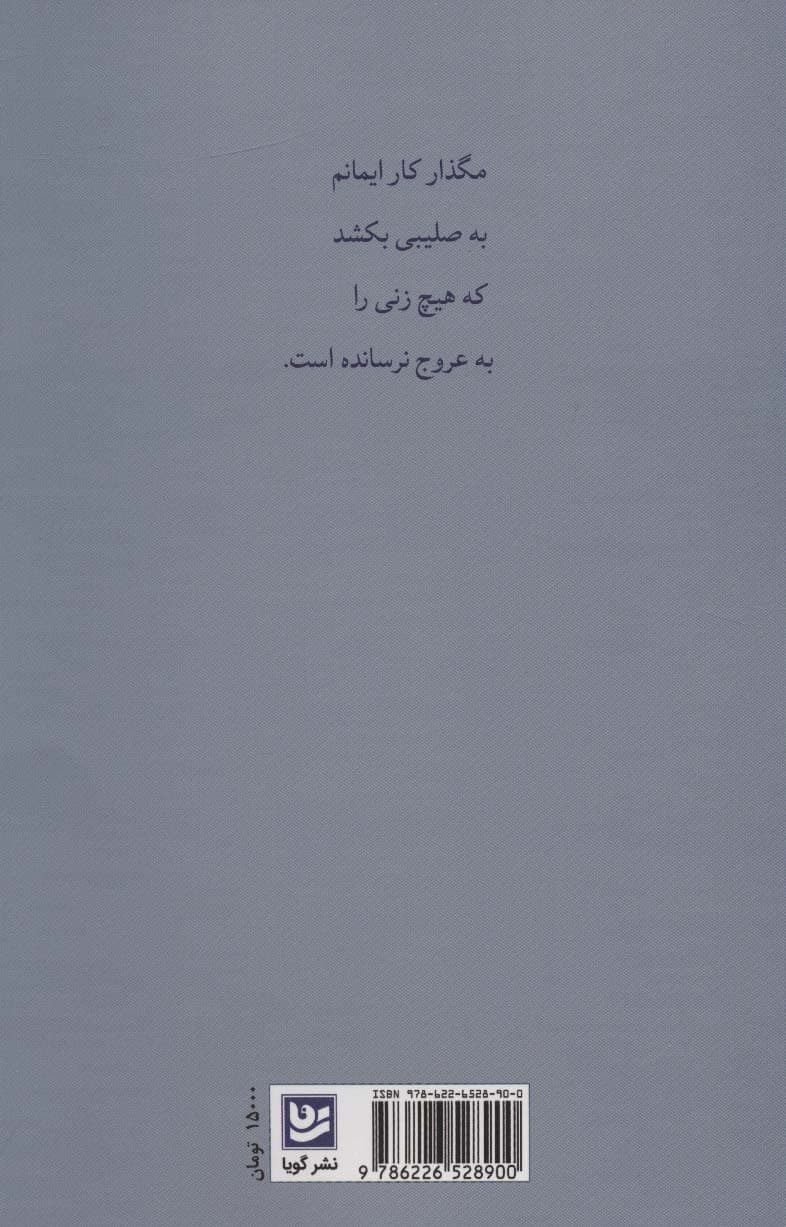 مگذار کار ایمانم
به صلیبی بکشد
که هیچ زنی را
به عروج نرسانده است.
۱۵۰۰۰ تومان
نشر گویا
ISBN 978-622-6528-90-0
9 786226 528900